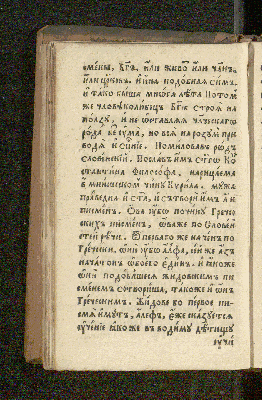 емены, бг҃а, или живо или чл҃нъ,
или црк҃ен. и ина подобная симъ.
и тако бѣша многа лѣта потомъ
же чл҃вѣколюбецъ бг҃ъ строѧ на
ползу, и не ѡставлѧѧ чл҃ческаго
рода без ума, но всѧ на разум при
водѧ и сп҃ние. помиловавъ род
словенский. посла им ст҃го ко
стантина философа, нарицаема
в минишском чину кирила. мужа
праведна и ст҃а, и сътвори имъ л҃и
писмен. ѡва ѹбо по чину грече
ских писмен, ѡва же по словен
стей речи. ѿ перваго же начен по
гречески, ѡни ѹбо алфа, сей же азъ
начатъ ѡ обоего един. и ꙗкоже
ѡни подобѧщесѧ жидовским пи
сменем сотвориша, такоже и ѡнъ
греческим. жидове бо первое пи
смѧ имут, алеф, еже сказуетсѧ
ѹчение ꙗкоже въводиму детищу